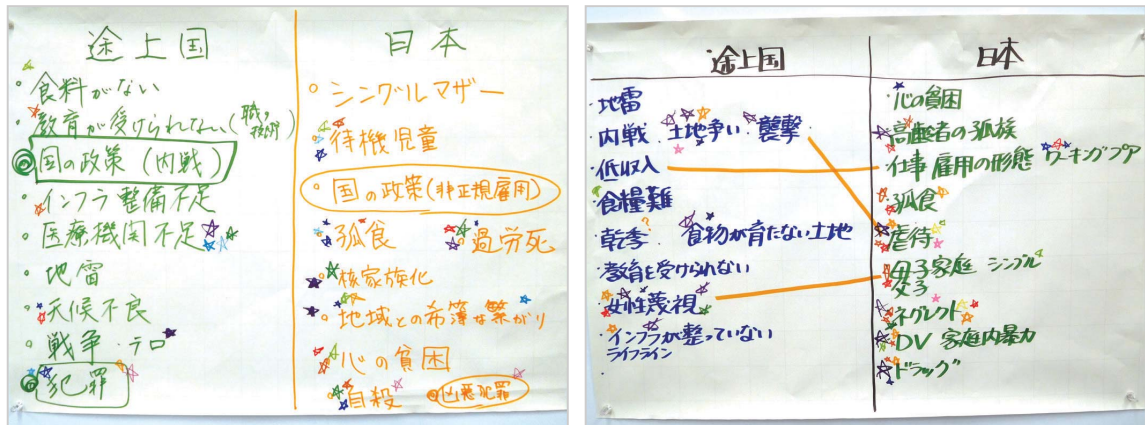 途上国
・食料がない
・教育が受けられてない(職、技術)
◎国の政策(内戦)
・インフラ整備不足
・医療機関不足
・地雷
・天候不良
・戦争・テロ
◎犯罪
日本
・シングルマザー
・待機児童
・国の政策(非正規雇用)
・孤食 ・過労死
・核家族化
・地域との希薄な繋がり
・心の貧困
・自殺 ◎凶悪犯罪
途上国
・地雷
・内戦 土地争い 襲撃
・低収入
・食糧難
・乾季 食物が育たない土地
・教育を受けられない
・女性蔑視
・インフラが整っていない
ライフライン
日本
・心の貧困
・高齢者の孤族
・仕事 雇用の形態 ワーキングプア
・孤食
・虐待
・母子家庭 シングル
父子
・ネグレクト
・DV 家庭内暴力
・ドラッグ